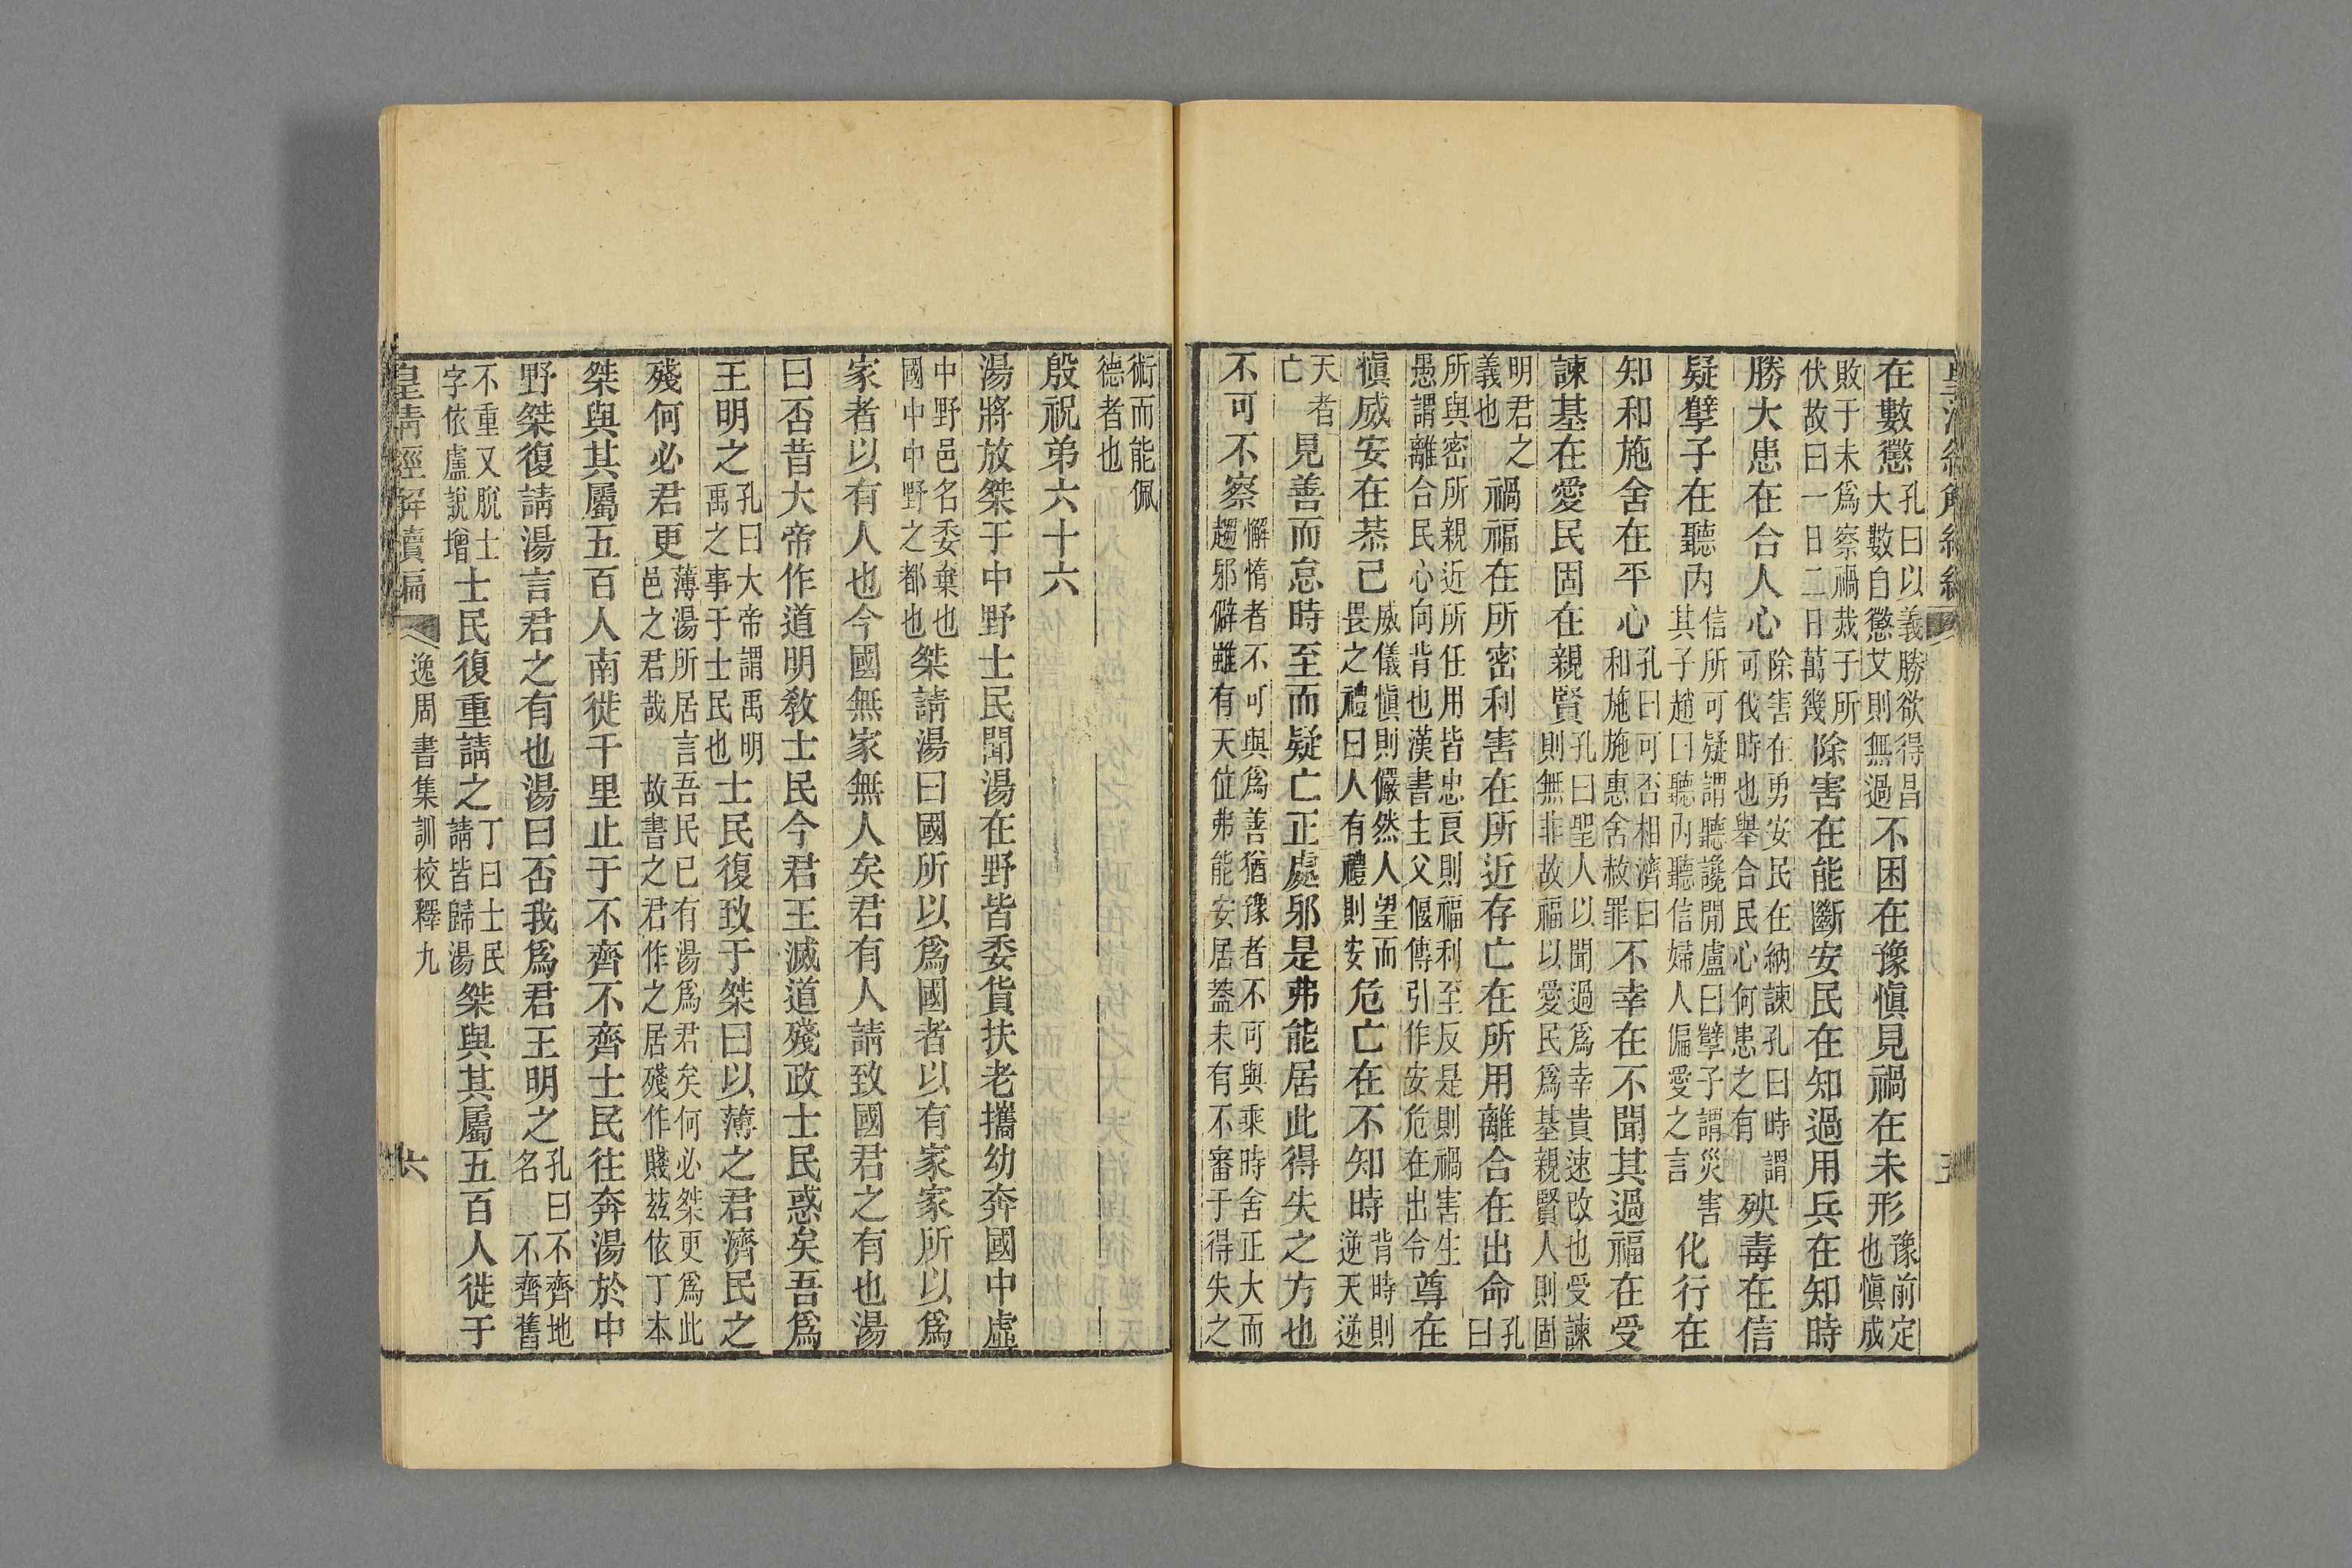 在數懲孔曰以義勝欲得昌大數自懲艾則無過不困在豫慎見禍在未形豫前定也慎成
敗于未爲察禍烖于所伏故曰一日二日萬幾除害在能斷安民在知過用兵在知時
勝大患在合人心除害在勇安民在納諫孔曰時謂可伐時也舉合民心何患之有殃毒在信
疑孼子在聽內信所可疑謂聽讒閒盧曰孼子謂災害其子趙曰聽內聽信婦人偏愛之言化行在
知和施舍在平心孔曰可否相濟曰和施施惠舍赦罪不幸在不聞其過福在受
諫基在愛民固在親賢孔曰聖人以聞過爲幸貴速改也受諫則無非故福以愛民爲基親賢人則固
明君之義也禍福在所密利害在所近存亡在所用離合在出命孔曰
所與密所親近所任用皆忠良則福利至反是則禍害生愚謂離合民心向背也漢書主父偃傳引作安危在出令尊在
慎威安在恭己威儀慎則儼然人望而畏之禮曰人有禮則安危亡在不知時背時則逆天逆
天者亡見善而怠時至而疑亡正處邪是弗能居此得失之方也
不可不察懈惰者不可與爲善猶豫者不可與乘時舍正大而趨邪僻雖有天位弗能安居葢未有不審于得失之
術而能佩德者也
殷祝弟六十六
湯將放桀于中野士民聞湯在野皆委貨扶老攜幼奔國中虛
中野邑名委棄也國中中野之都也桀請湯曰國所以爲國者以有家家所以爲
家者以有人也今國無家無人矣君有人請致國君之有也湯
曰否昔大帝作道明敎士民今君王滅道殘政士民惑矣吾爲
王明之孔曰大帝謂禹明禹之事于士民也士民復致于桀曰以薄之君濟民之
殘何必君更薄湯所居言吾民已有湯爲君矣何必桀更爲此邑之君哉故書之君作之居殘作賤茲依丁本
桀與其屬五百人南徙千里止于不齊不齊士民往奔湯於中
野桀復請湯言君之有也湯曰否我爲君王明之孔曰不齊地名不齊舊
不重又脫士字依盧說增士民復重請之丁曰士民請皆歸湯桀與其屬五百人徙于
皇清經解續編 逸周書集訓校釋九 六